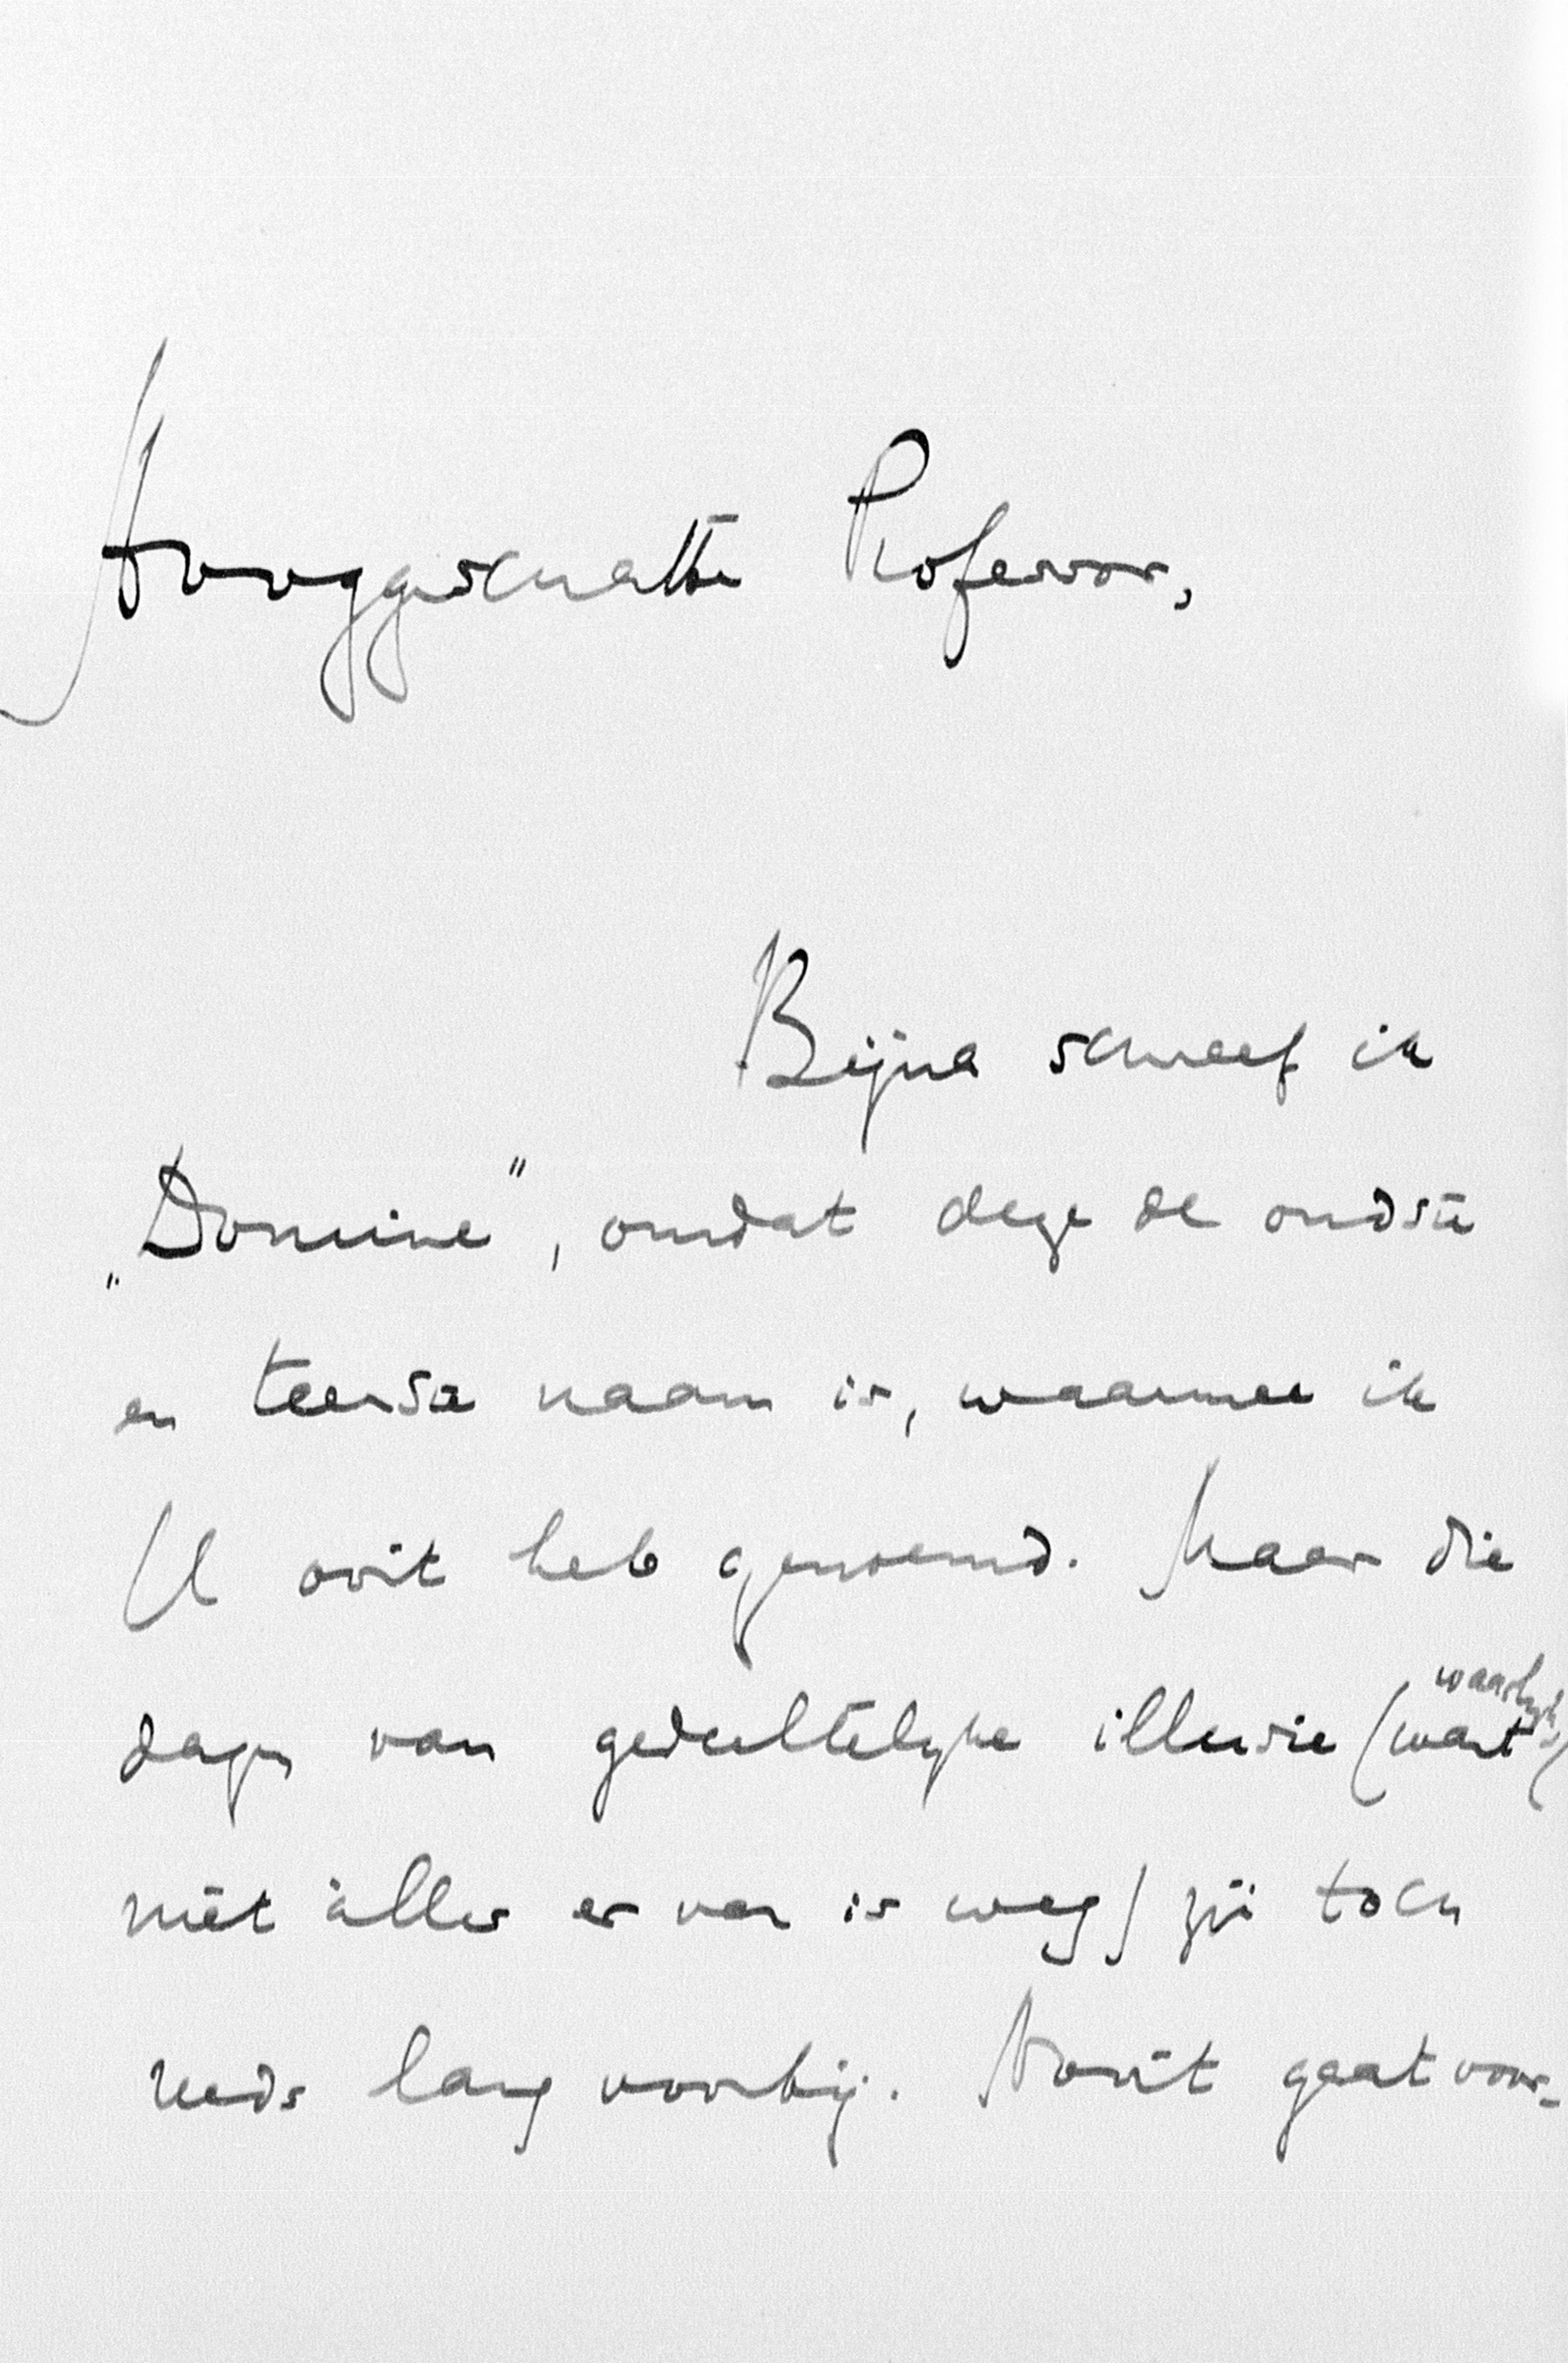 Hooggeschatte Professor,
Bijna schreef ik
„Domine", omdat deze de oudste
en teerste naam is, waarmee ik
U ooit heb genoemd. Maar die
dagen van gedeeltelijke illusie (want waarlijk
niet àlles er van is weg) zijn toch
reeds lang voorbij. Nooit gaat voor-